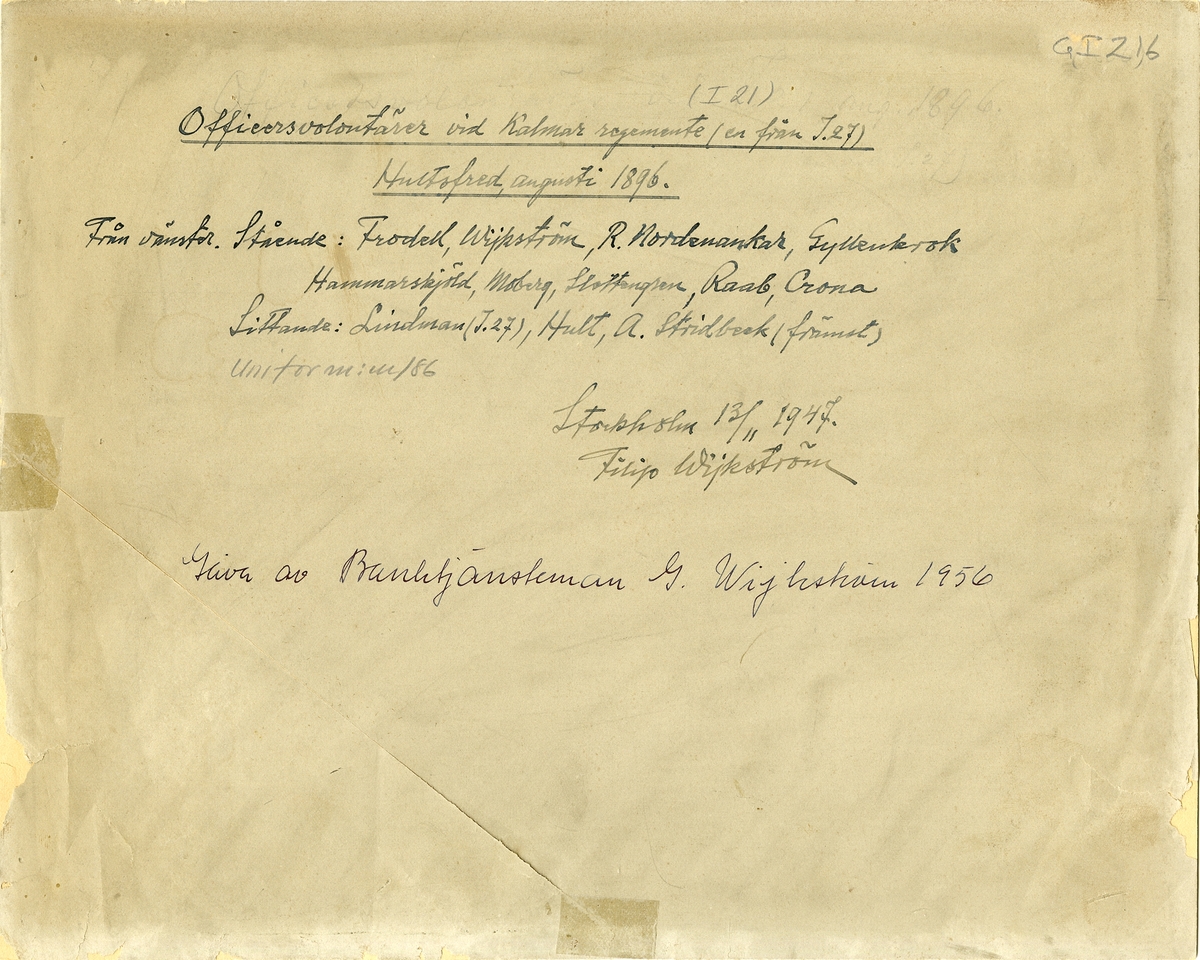 G I 21,6
(I 21)
Officersvolontärer vid Kalmar regemente (en från I.27)
Hultsfred, augusti 1896.
Från vänster. Stående: Frodell, Wijkström, R. Nordenankar, Gyllenkrok
Hammarskjöld, Moberg, Slottengren, Raab, Crona
Sittande: Lindman (I.27), Hult, A. Stridbeck (främst)
Uniform: m/86
Stockholm 13/11 1947.
Filip Wijkström
Gåva av Banktjänsteman G. Wijkström 1956